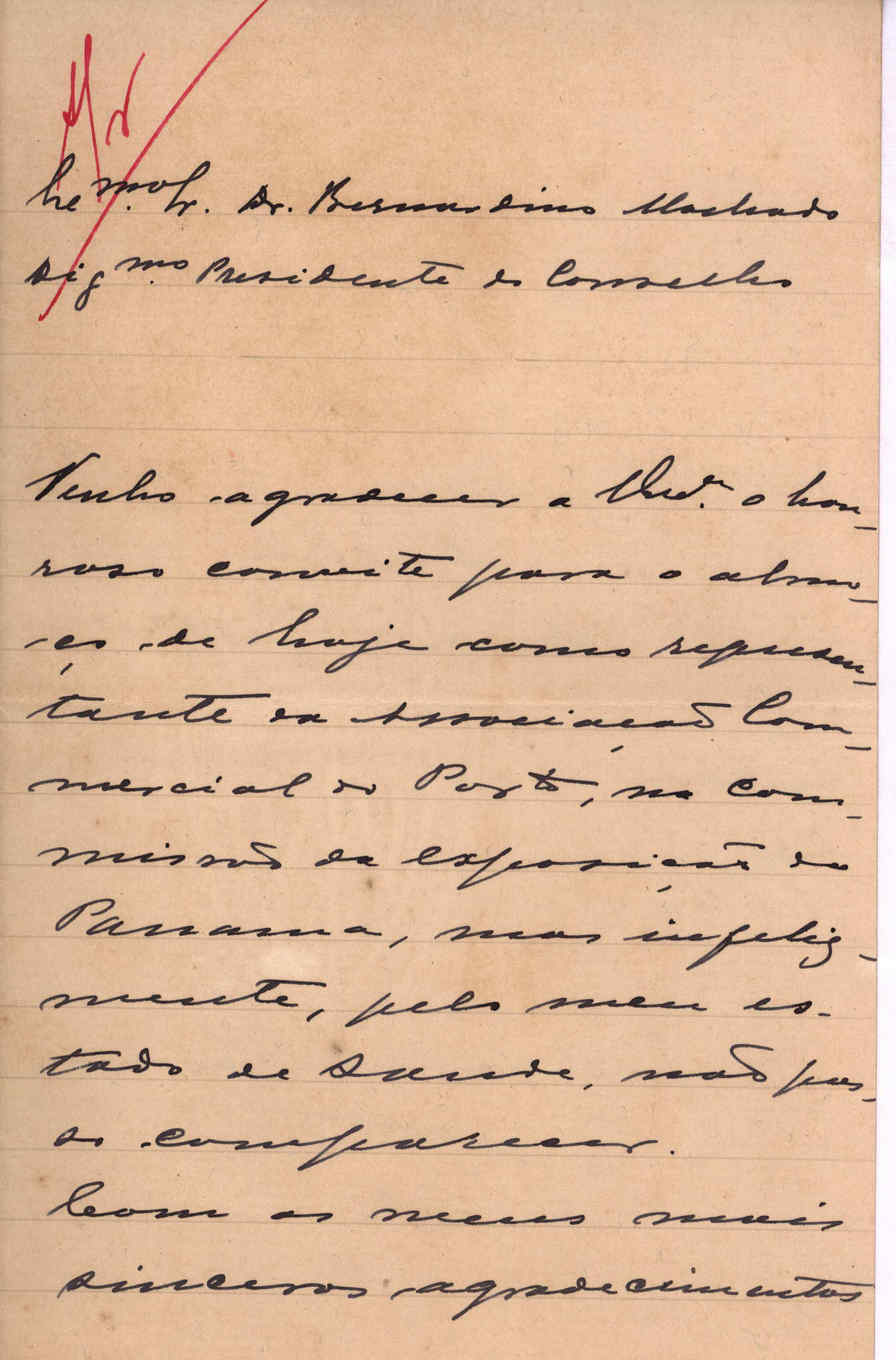 Sr. Dr. Bernardino Machado
Dig.mo Presidente do Conselho
Venho agradecer a o hon-
roso convite para o almo-
ço de hoje como represen-
tante da Associação Com-
mercial do Porto, na Com-
missão da exposição do
Panama, mas infeliz-
mente, pelo meu es-
tado de saude, não pos-
so comparecer.
Com os meus mais
sinceros agradecimentos